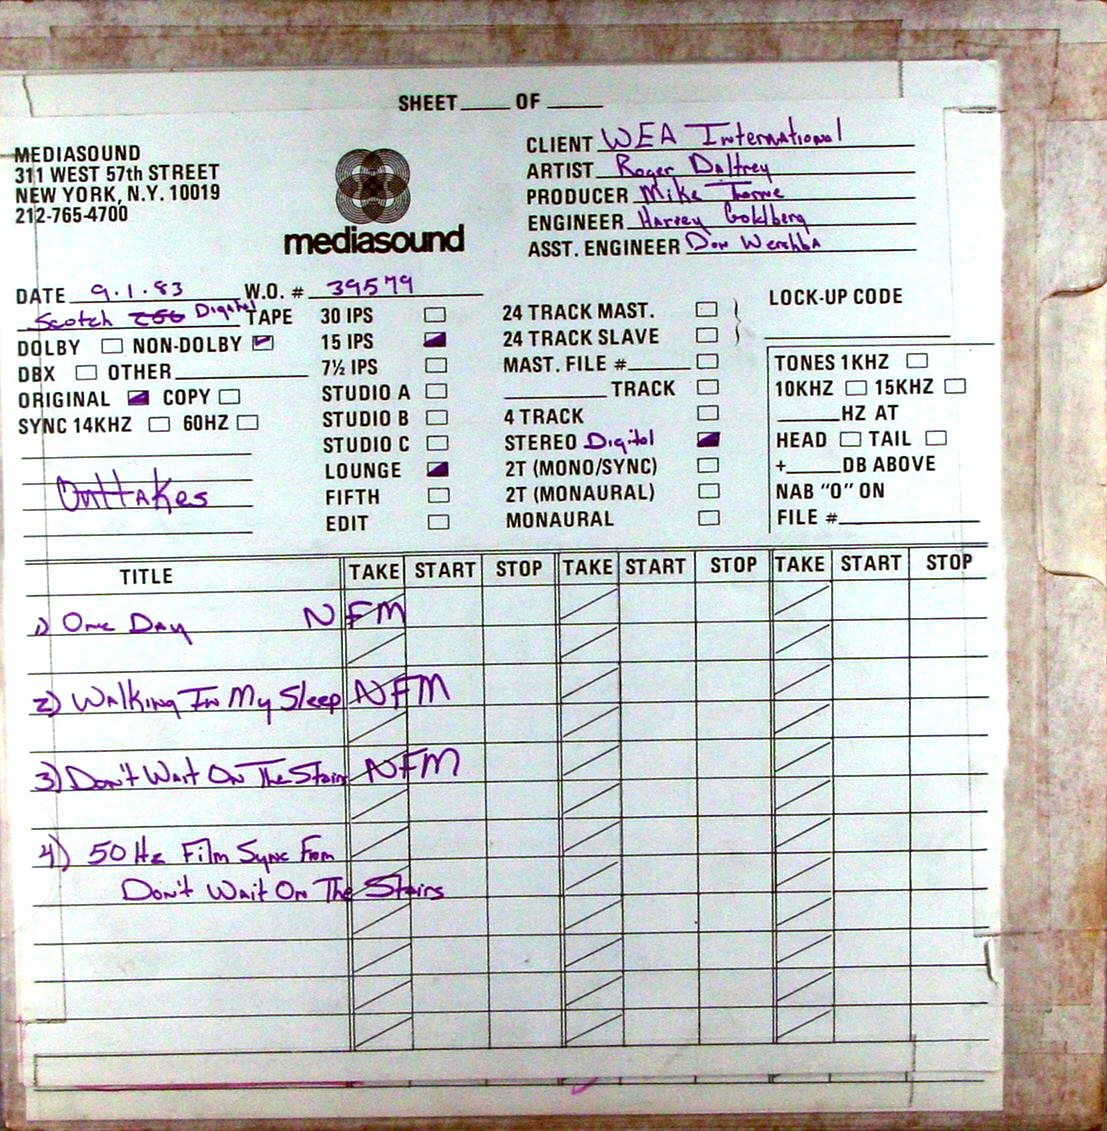 SHEET____ OF ____
MEDIASOUND
311 WEST 57th STREET
NEW YORK, N.Y. 10019
212-765-4700
mediasound
CLIENT WEA International
ARTIST Roger Daltrey
PRODUCER Mike Thorne
ENGINEER Harvey Goldberg
ASST. ENGINEER Don Wershba
DATE 9.1.83 W.O. # 39579
Scotch 250 Digital TAPE
DOLBY NON-DOLBY
DBX OTHER
ORIGINAL COPY
SYNC 14KHZ 60HZ
Outtakes
30 IPS
15 IPS
7½ IPS
STUDIO A
STUDIO B
STUDIO C
LOUNGE
FIFTH
EDIT
24 TRACK MAST.
24 TRACK SLAVE
MAST. FILE #
TRACK
4 TRACK
STEREO Digital
2T (MONO/SYNC)
2T (MONAURAL)
MONAURAL
LOCK-UP CODE
TONES 1KHZ
10KHZ 15KHZ
____HZ AT
HEAD TAIL
+____DB ABOVE
NAB "0" ON
FILE #
TITLE TAKE START STOP TAKE START STOP TAKE START STOP
1) One Day NFM
2) Walking In My Sleep NFM
3) Don't Wait On The Stairs NFM
4) 50 Hz Film Sync From
Don't Wait On The Stairs